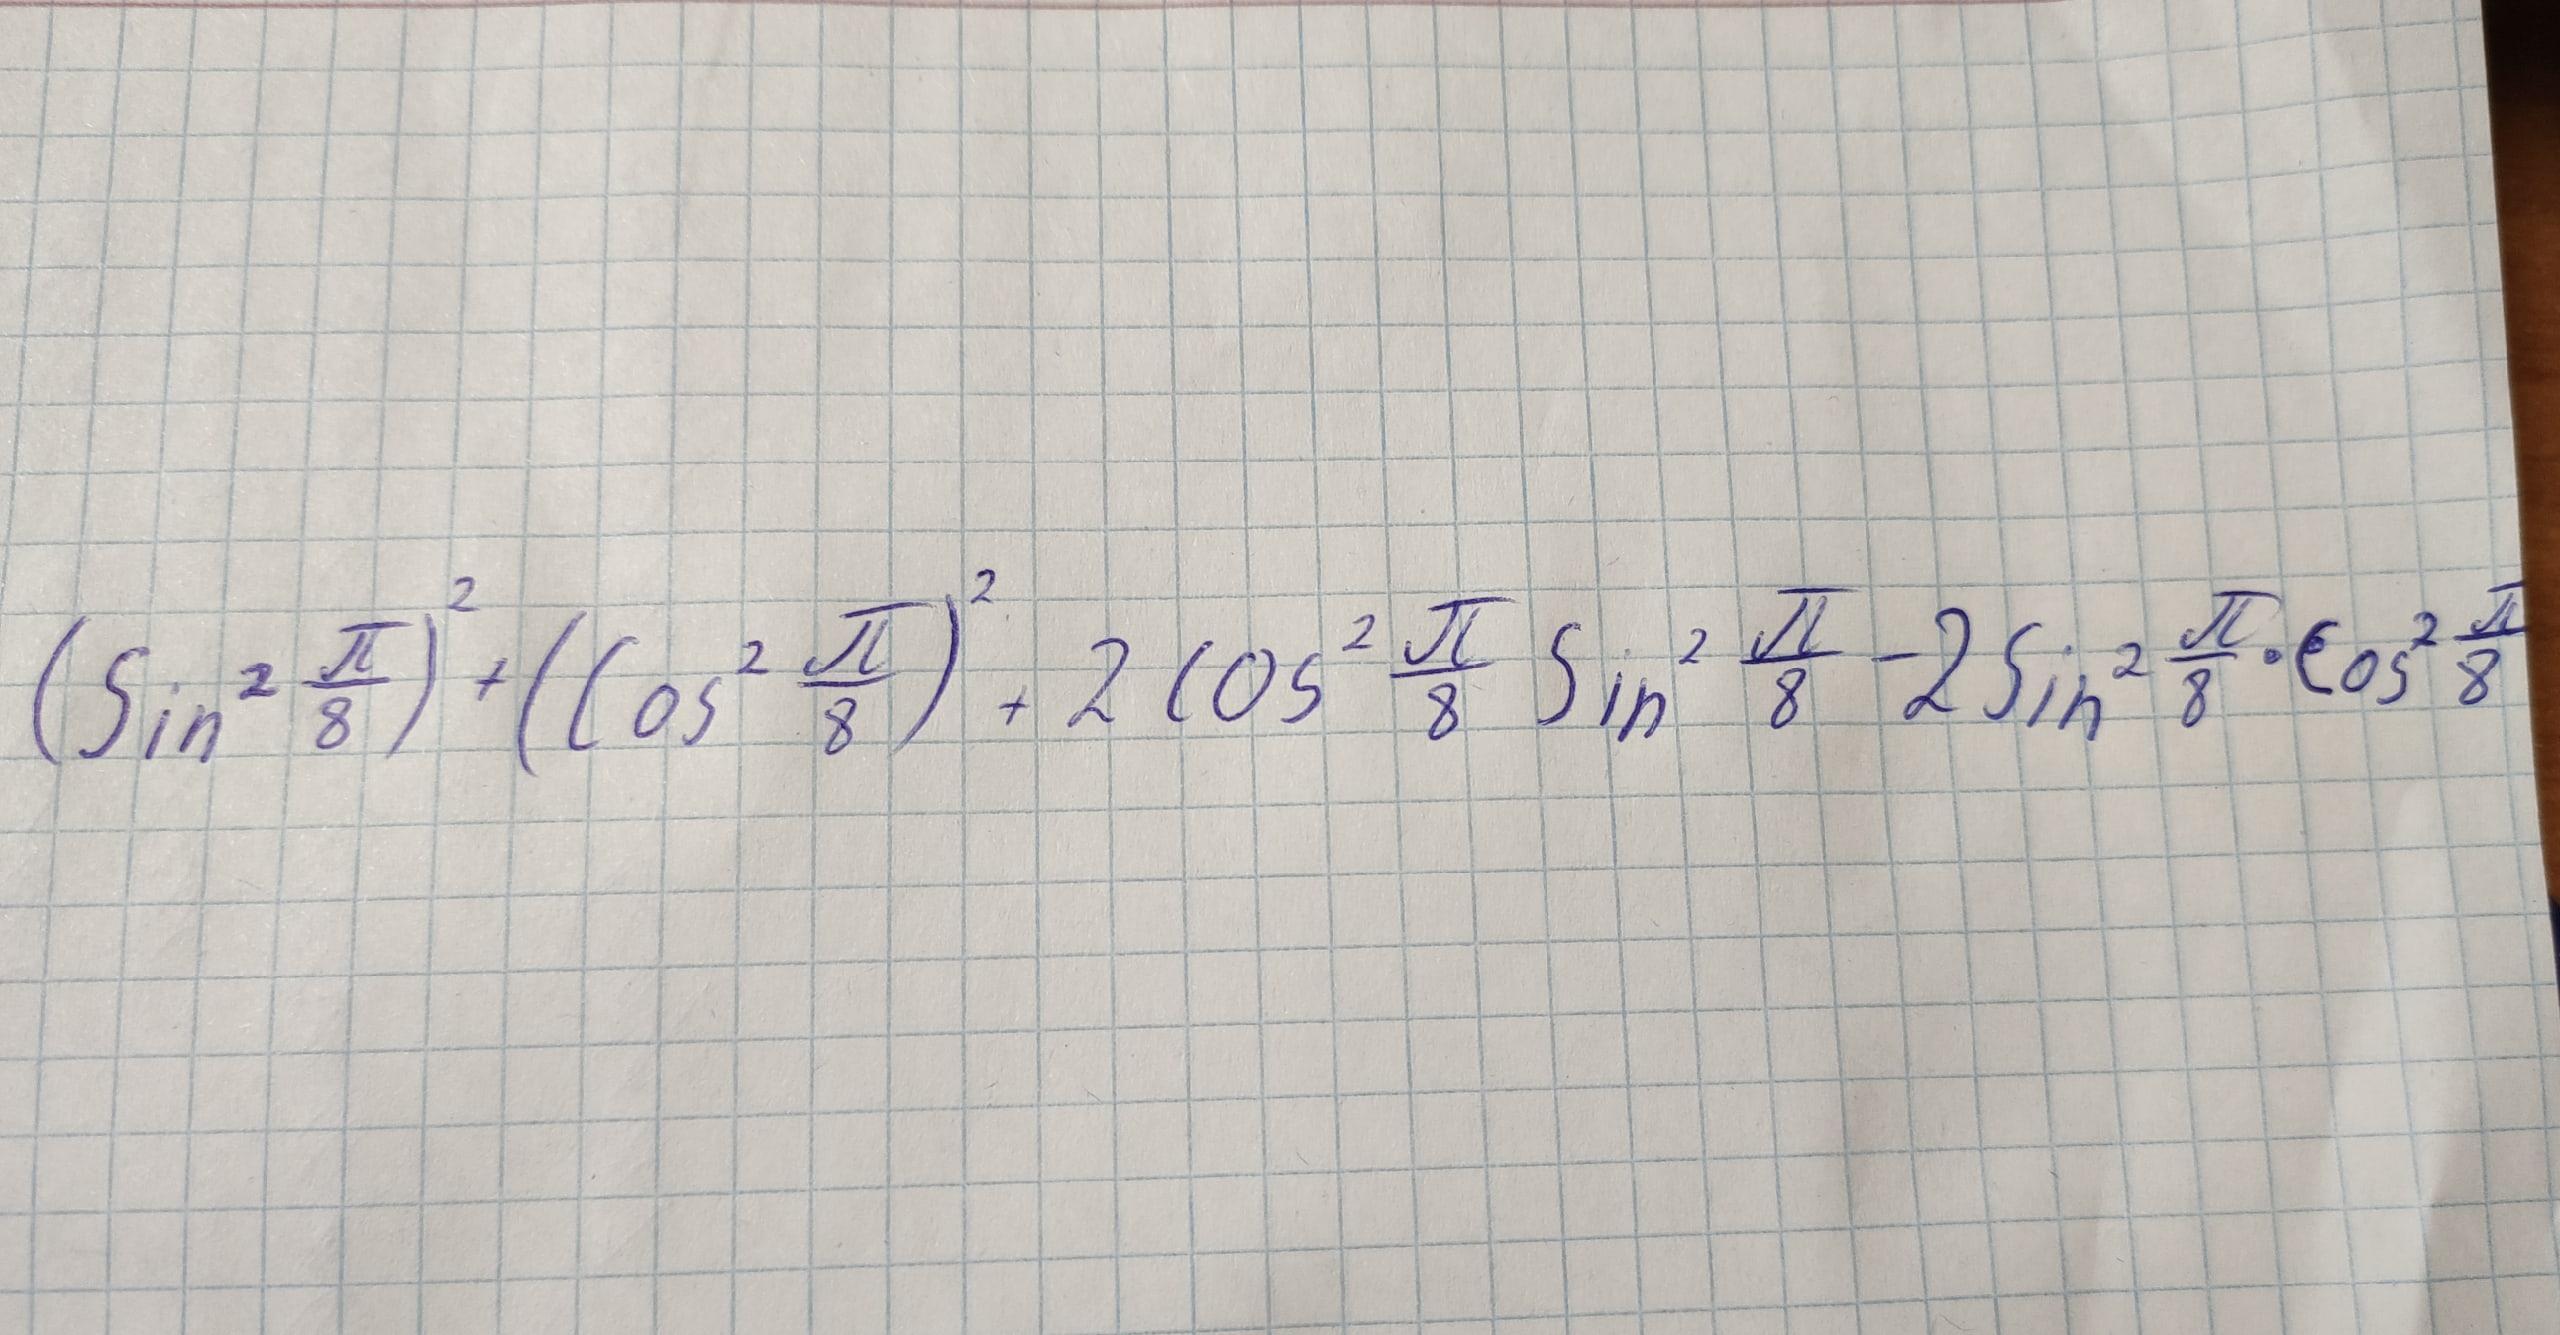 (Sin² π/8)² + (Cos² π/8)² + 2 Cos² π/8 Sin² π/8 - 2 Sin² π/8 · Cos² π/8